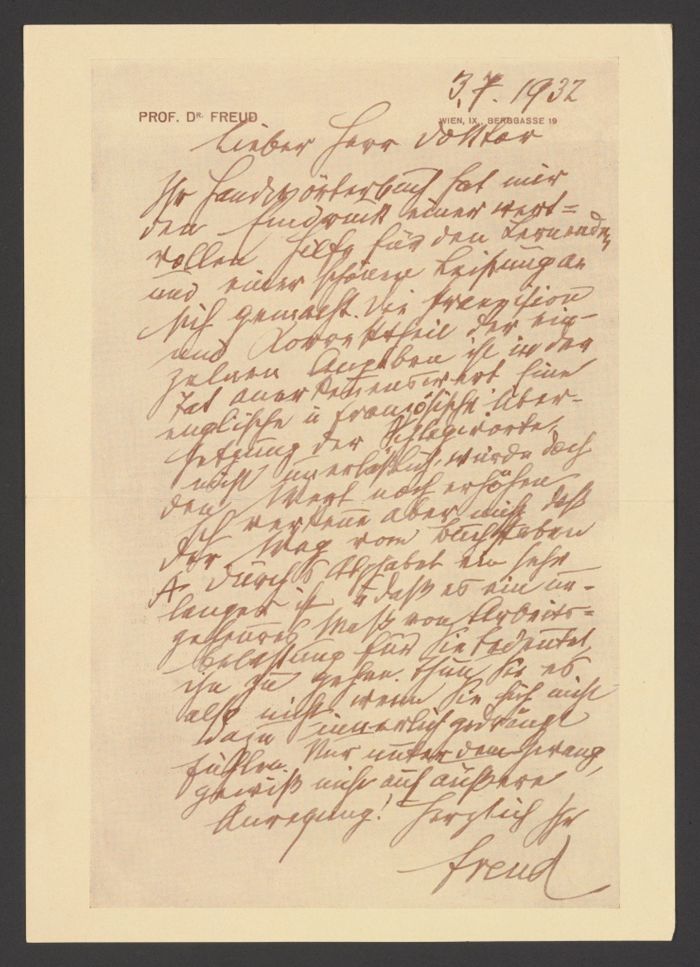 3.7.1932
PROF. DR. FREUD
WIEN, IX., BERGGASSE 19
Lieber Herr Doktor
Ihr Handwörterbuch hat mir
den Eindruck einer wert=
vollen Hilfe für den Lernenden
und einer schönen Leistung an
sich gemacht. Die Praezision
und Korrektheit der ein-
zelnen Angaben ist in der
Tat anerkennenswert. Eine
englische u französische Über-
setzung der Schlagworte,
nicht unerlässlich, würde doch
den Wert noch erhöhen
Ich verkenne aber nicht, daß
der Weg vom Buchstaben
A durchs Alphabet ein sehr
langer ist u daß es ein un-
geheures Maß von Arbeits=
belastung für Sie bedeutet,
ihn zu gehen. Thun Sie es
also nicht, wenn Sie sich nicht
dazu innerlich gedrängt
fühlen. Nur unter dem Zwang,
gewiß nicht auf äußere
Anregung! Herzlich Ihr
Freud